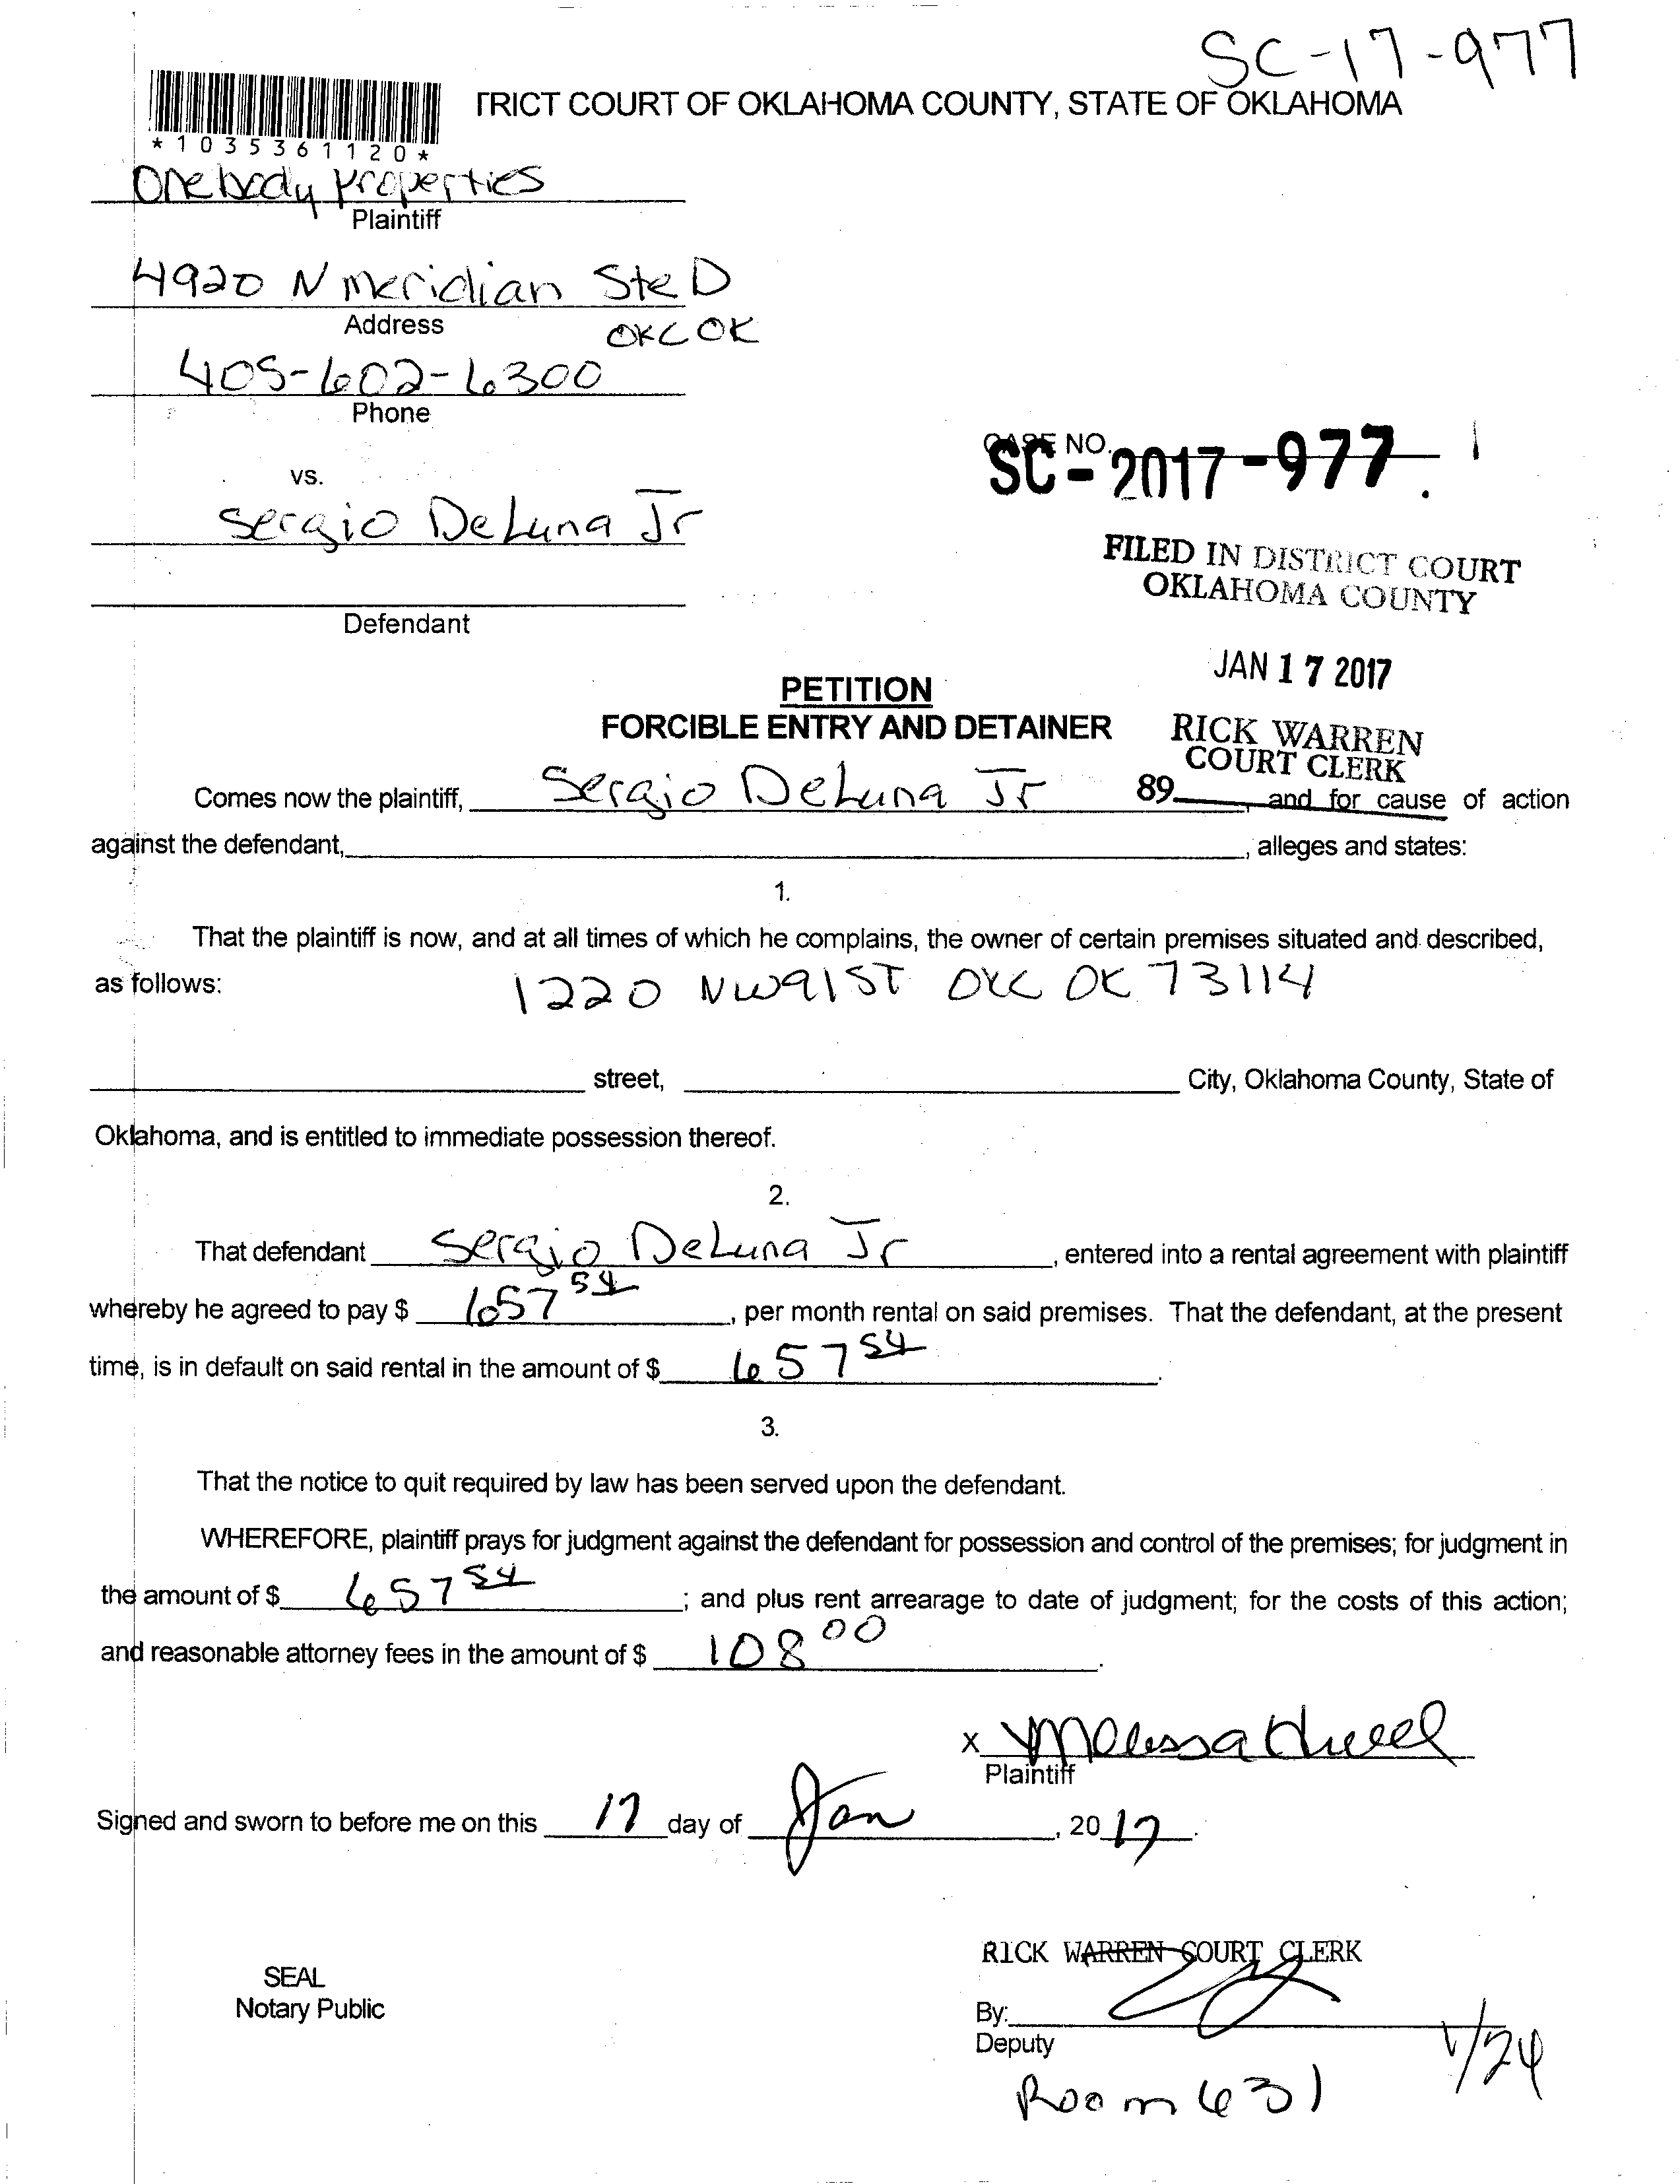 SC-17-977
TRICT COURT OF OKLAHOMA COUNTY, STATE OF OKLAHOMA
*1035361120*
Onebody Properties
Plaintiff
4920 N Meridian Ste D
Address
OKC OK
405-602-6300
Phone
CASE NO.
SC-2017-977
vs.
Sergio DeLuna Jr
FILED IN DISTRICT COURT
OKLAHOMA COUNTY
Defendant
JAN 17 2017
PETITION
FORCIBLE ENTRY AND DETAINER
RICK WARREN
COURT CLERK
Comes now the plaintiff, Sergio DeLuna Jr 89 , and for cause of action
against the defendant, , alleges and states:
1.
That the plaintiff is now, and at all times of which he complains, the owner of certain premises situated and described,
as follows: 1220 NW 91ST OKC OK 73114
street, City, Oklahoma County, State of
Oklahoma, and is entitled to immediate possession thereof.
2.
That defendant Sergio DeLuna Jr , entered into a rental agreement with plaintiff
whereby he agreed to pay $ 657 54 , per month rental on said premises. That the defendant, at the present
time, is in default on said rental in the amount of $ 657 54 .
3.
That the notice to quit required by law has been served upon the defendant.
WHEREFORE, plaintiff prays for judgment against the defendant for possession and control of the premises; for judgment in
the amount of $ 657 54 ; and plus rent arrearage to date of judgment; for the costs of this action;
and reasonable attorney fees in the amount of $ 108 00 .
x Melissa
Plaintiff
Signed and sworn to before me on this 17 day of Jan , 20 17 .
RICK WARREN COURT CLERK
SEAL
Notary Public
By:
Deputy
1/24
Room 631